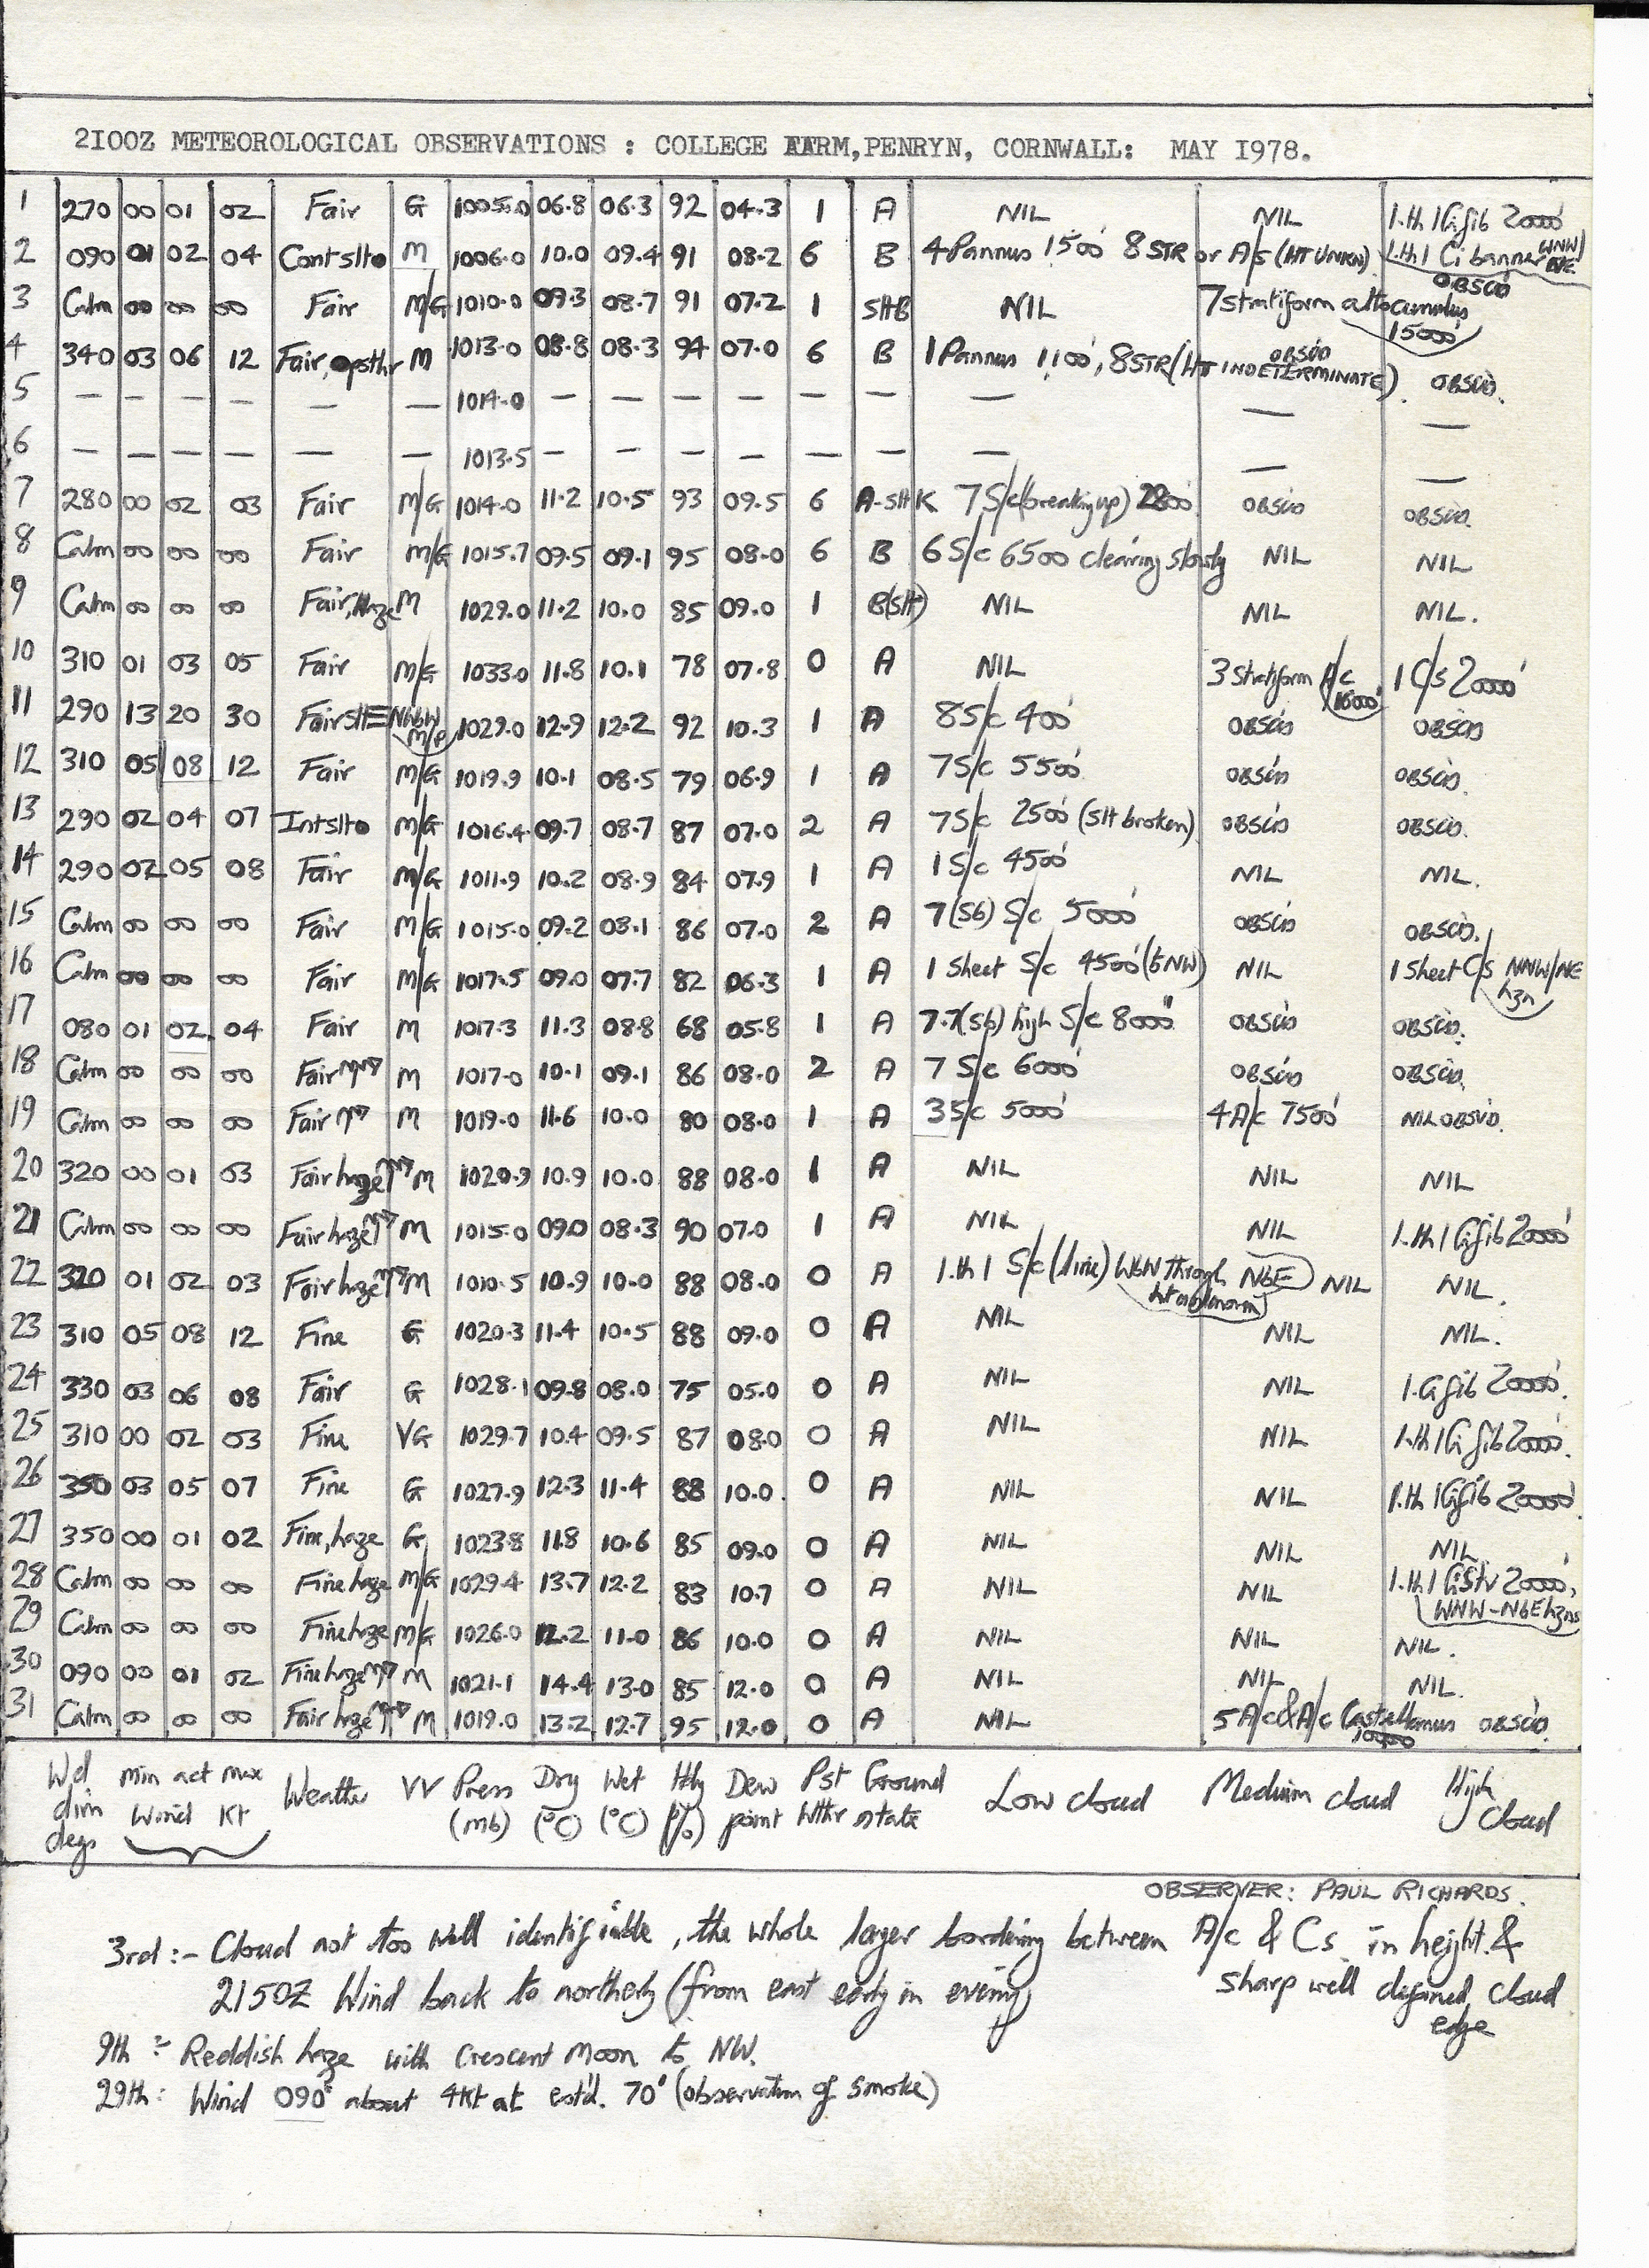 2I00Z METEOROLOGICAL OBSERVATIONS : COLLEGE FARM, PENRYN, CORNWALL: MAY I978.
1 270 00 01 02 Fair G 1005.0 06.8 06.3 92 04.3 1 A NIL NIL 1.th 1 Cifib 20000'
2 090 01 02 04 Contslto M 1006.0 10.0 09.4 91 08.2 6 B 4 Pannus 1500' 8 STR or A/s (HT UNKN). 1.th 1 Ci banner WNW/NE OBSCD
3 Calm 00 00 00 Fair M/G 1010.0 09.3 08.7 91 07.2 1 SltB NIL 7 stratiform altocumulus 15000'
4 340 03 06 12 Fair, M 1013.0 08.8 08.3 94 07.0 6 B 1 Pannus 1100', 8 STR (HT INDETERMINATE) OBSCD OBSCD.
5 – – – – – – 1014.0 – – – – – – – – –
6 – – – – – – 1013.5 – – – – – – – – –
7 280 00 02 03 Fair M/G 1014.0 11.2 10.5 93 09.5 6 A-slt K 7 S/c (breaking up) 2800' OBSCD OBSCD.
8 Calm 00 00 00 Fair M/G 1015.7 09.5 09.1 95 08.0 6 B 6 S/c 6500 clearing slowly NIL NIL
9 Calm 00 00 00 Fair, Haze M 1029.0 11.2 10.0 85 09.0 1 B(slt) NIL NIL NIL.
10 310 01 03 05 Fair M/G 1033.0 11.8 10.1 78 07.8 0 A NIL 3 stratiform A/c 16000' 1 C/s 20000'
11 290 13 20 30 Fair slt NWbW M/P 1029.0 12.9 12.2 92 10.3 1 A 8 S/c 400' OBSCD OBSCD
12 310 05 08 12 Fair M/G 1019.9 10.1 08.5 79 06.9 1 A 7 S/c 5500' OBSCD OBSCD.
13 290 02 04 07 Intslto M/G 1016.4 09.7 08.7 87 07.0 2 A 7 S/c 2500' (slt broken) OBSCD OBSCD.
14 290 02 05 08 Fair M/G 1011.9 10.2 08.9 84 07.9 1 A 1 S/c 4500' NIL NIL.
15 Calm 00 00 00 Fair M/G 1015.0 09.2 08.1 86 07.0 2 A 7 (Sb) S/c 5000' OBSCD OBSCD.
16 Calm 00 00 00 Fair M/G 1017.5 09.0 07.7 82 06.3 1 A 1 Sheet S/c 4500' (to NW) NIL 1 Sheet C/s NNW/NE hzn
17 080 01 02 04 Fair M 1017.3 11.3 08.8 68 05.8 1 A 7.7(sb) high S/c 8000" OBSCD OBSCD.
18 Calm 00 00 00 Fair M 1017.0 10.1 09.1 86 08.0 2 A 7 S/c 6000' OBSCD OBSCD.
19 Calm 00 00 00 Fair M 1019.0 11.6 10.0 80 08.0 1 A 3 S/c 5000' 4 A/c 7500' NIL OBSVD.
20 320 00 01 03 Fair haze M 1020.9 10.9 10.0 88 08.0 1 A NIL NIL NIL
21 Calm 00 00 00 Fair haze M 1015.0 09.0 08.3 90 07.0 1 A NIL NIL 1.th 1 Cifib 20000'
22 320 01 02 03 Fair haze M 1010.5 10.9 10.0 88 08.0 0 A 1.th 1 S/c (line) WbW through NbE ht unknown NIL NIL.
23 310 05 08 12 Fine G 1020.3 11.4 10.5 88 09.0 0 A NIL NIL NIL.
24 330 03 06 08 Fair G 1028.1 09.8 08.0 75 05.0 0 A NIL NIL 1.Cifib 20000'.
25 310 00 02 03 Fine VG 1029.7 10.4 09.5 87 08.0 0 A NIL NIL 1.th 1 Cifib 20000'.
26 350 03 05 07 Fine G 1027.9 12.3 11.4 88 10.0 0 A NIL NIL 1.th 1 Cifib 20000'.
27 350 00 01 02 Fine, haze G 1023.8 11.8 10.6 85 09.0 0 A NIL NIL NIL.
28 Calm 00 00 00 Fine haze M/G 1029.4 13.7 12.2 83 10.7 0 A NIL NIL 1.th 1 CiStv 20000', WNW-NbE hzns
29 Calm 00 00 00 Fine haze M/G 1026.0 12.2 11.0 86 10.0 0 A NIL NIL NIL.
30 090 00 01 02 Fine haze M 1021.1 14.4 13.0 85 12.0 0 A NIL NIL NIL.
31 Calm 00 00 00 Fair haze M 1019.0 13.2 12.7 95 12.0 0 A NIL 5 A/c & A/c Castellanus 10000 OBSCD.
Wd dirn degs min act max Wind Kt Weather VV Press (mb) Dry (°C) Wet (°C) Hty (%) Dew point Pst Wthr Ground state Low cloud Medium cloud High cloud
OBSERVER: PAUL RICHARDS.
3rd :- Cloud not too well identifiable, the whole layer bordering between A/c & Cs in height &
sharp well defined cloud edge
2150Z Wind back to northerly (from east early in evening)
9th :- Reddish haze with Crescent Moon to NW.
29th: Wind 090° about 4Kt at est'd. 70' (observation of smoke)